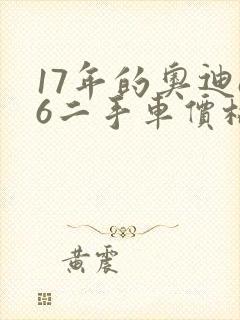 17年的奧迪
6二手車價
黃震